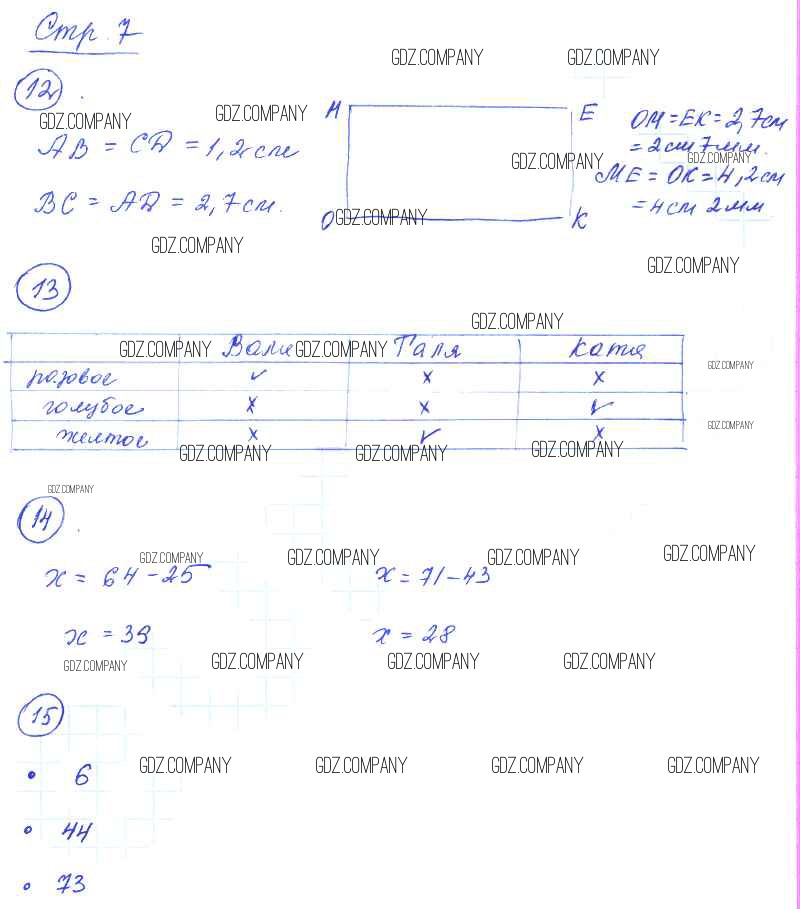 Стр. 7
GDZ.COMPANY GDZ.COMPANY
12
GDZ.COMPANY GDZ.COMPANY
М Е
ОМ = ЕК = 2,7 см
= 2 см 7 мм.
АВ = СД = 1,2 см
GDZ.COMPANY GDZ.COMPANY
МЕ = ОК = 4,2 см
= 4 см 2 мм
ВС = АД = 2,7 см.
О К
GDZ.COMPANY
GDZ.COMPANY
GDZ.COMPANY
13
GDZ.COMPANY
Валя Галя Катя
GDZ.COMPANY GDZ.COMPANY
GDZ.COMPANY
розовое ✓ x x
голубое x x ✓
GDZ.COMPANY
желтое x ✓ x
GDZ.COMPANY GDZ.COMPANY GDZ.COMPANY
GDZ.COMPANY
14
GDZ.COMPANY GDZ.COMPANY GDZ.COMPANY GDZ.COMPANY
x = 64 - 25 x = 71 - 43
x = 39 x = 28
GDZ.COMPANY GDZ.COMPANY GDZ.COMPANY GDZ.COMPANY
15
GDZ.COMPANY GDZ.COMPANY GDZ.COMPANY GDZ.COMPANY
• 6
• 44
• 73